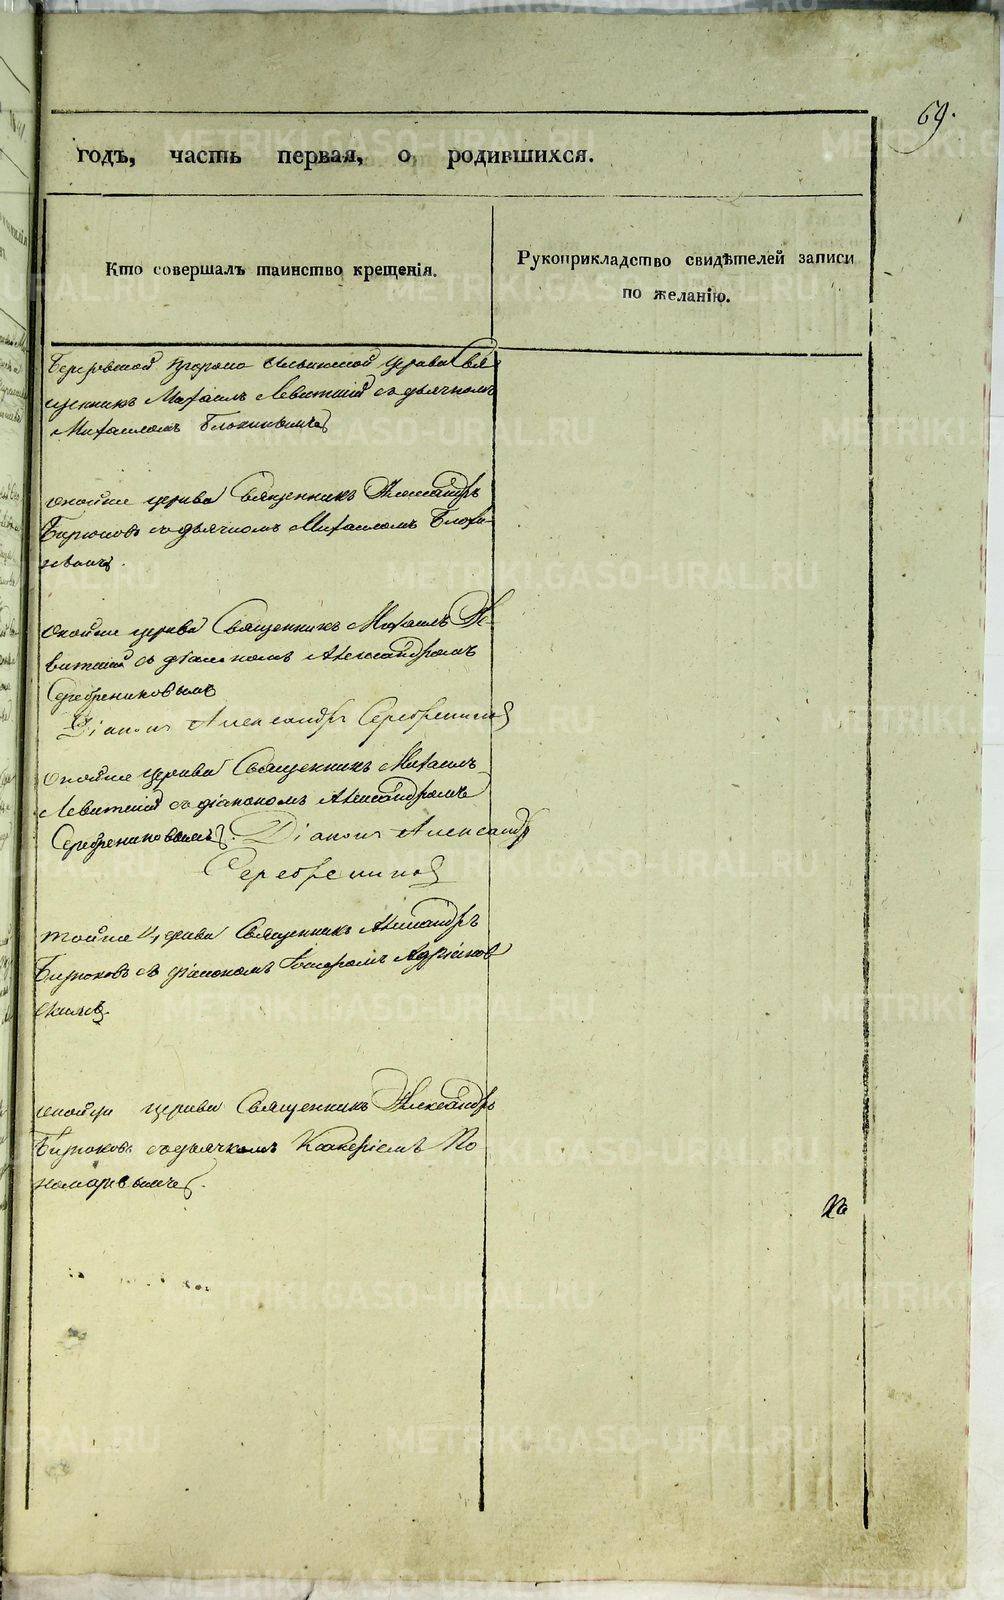 69.
годъ, часть первая, о родившихся.
Кто совершалъ таинство крещенія.
Рукоприкладство свидѣтелей записи
по желанію.
церкви Свя-
щенникъ Михаилъ Левитскій съ дьячкомъ
Михаиломъ Блохинымъ
тойже церкви Священникъ Александръ
Бирюковъ съ дьячкомъ Михаиломъ Блохи-
нымъ.
тойже церкви Священникъ Михаилъ Ле-
витскій съ діакономъ Александромъ
Серебрениковымъ
Діаконъ Александръ Серебрениковъ
тойже церкви Священникъ Михаилъ
Левитскій съ діакономъ Александромъ
Серебрениковымъ. Діаконъ Александръ
Серебрениковъ
тойже церкви Священникъ Александръ
Бирюковъ съ діакономъ Адріанов
скимъ.
тойже церкви Священникъ Александръ
Бирюковъ съ дьячкомъ По
номаревымъ.
METRIKI.GASO-URAL.RU